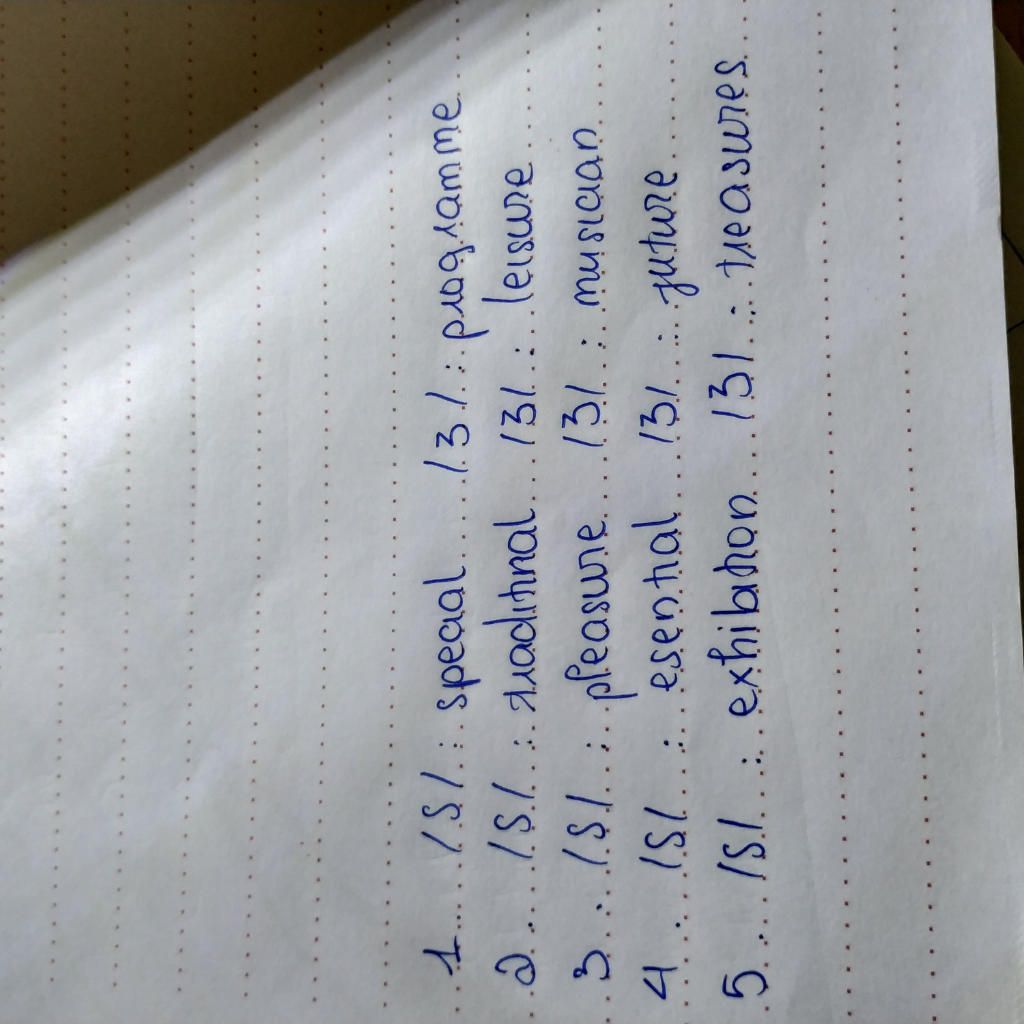 1 /S/ : special /3/ : programme
2 . /S/ : traditinal /3/ : leisure
3 . /S/ : pleasure /3/ : musician
4 . /S/ : esential /3/ : future
5 . /S/ : exhibation /3/ : treasures